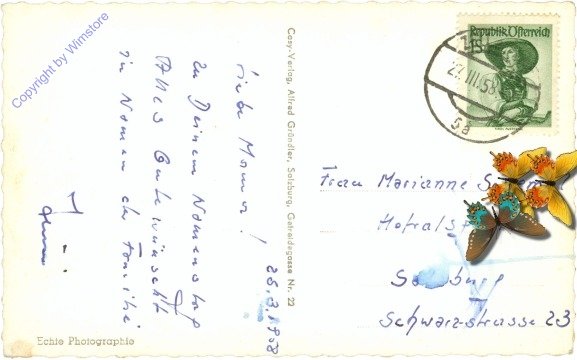 Copyright by Wimstore
26.3.1958
Liebe Mama!
Zu Deinem Namenstag
Alles Gute wünscht
im Namen der Familie
Casy-Verlag, Alfred Gründler, Salzburg, Getreidegasse Nr. 22
Echte Photographie
Republik Österreich
27.III.58
5a
Frau Marianne
Salzburg
Schwarzstrasse 23